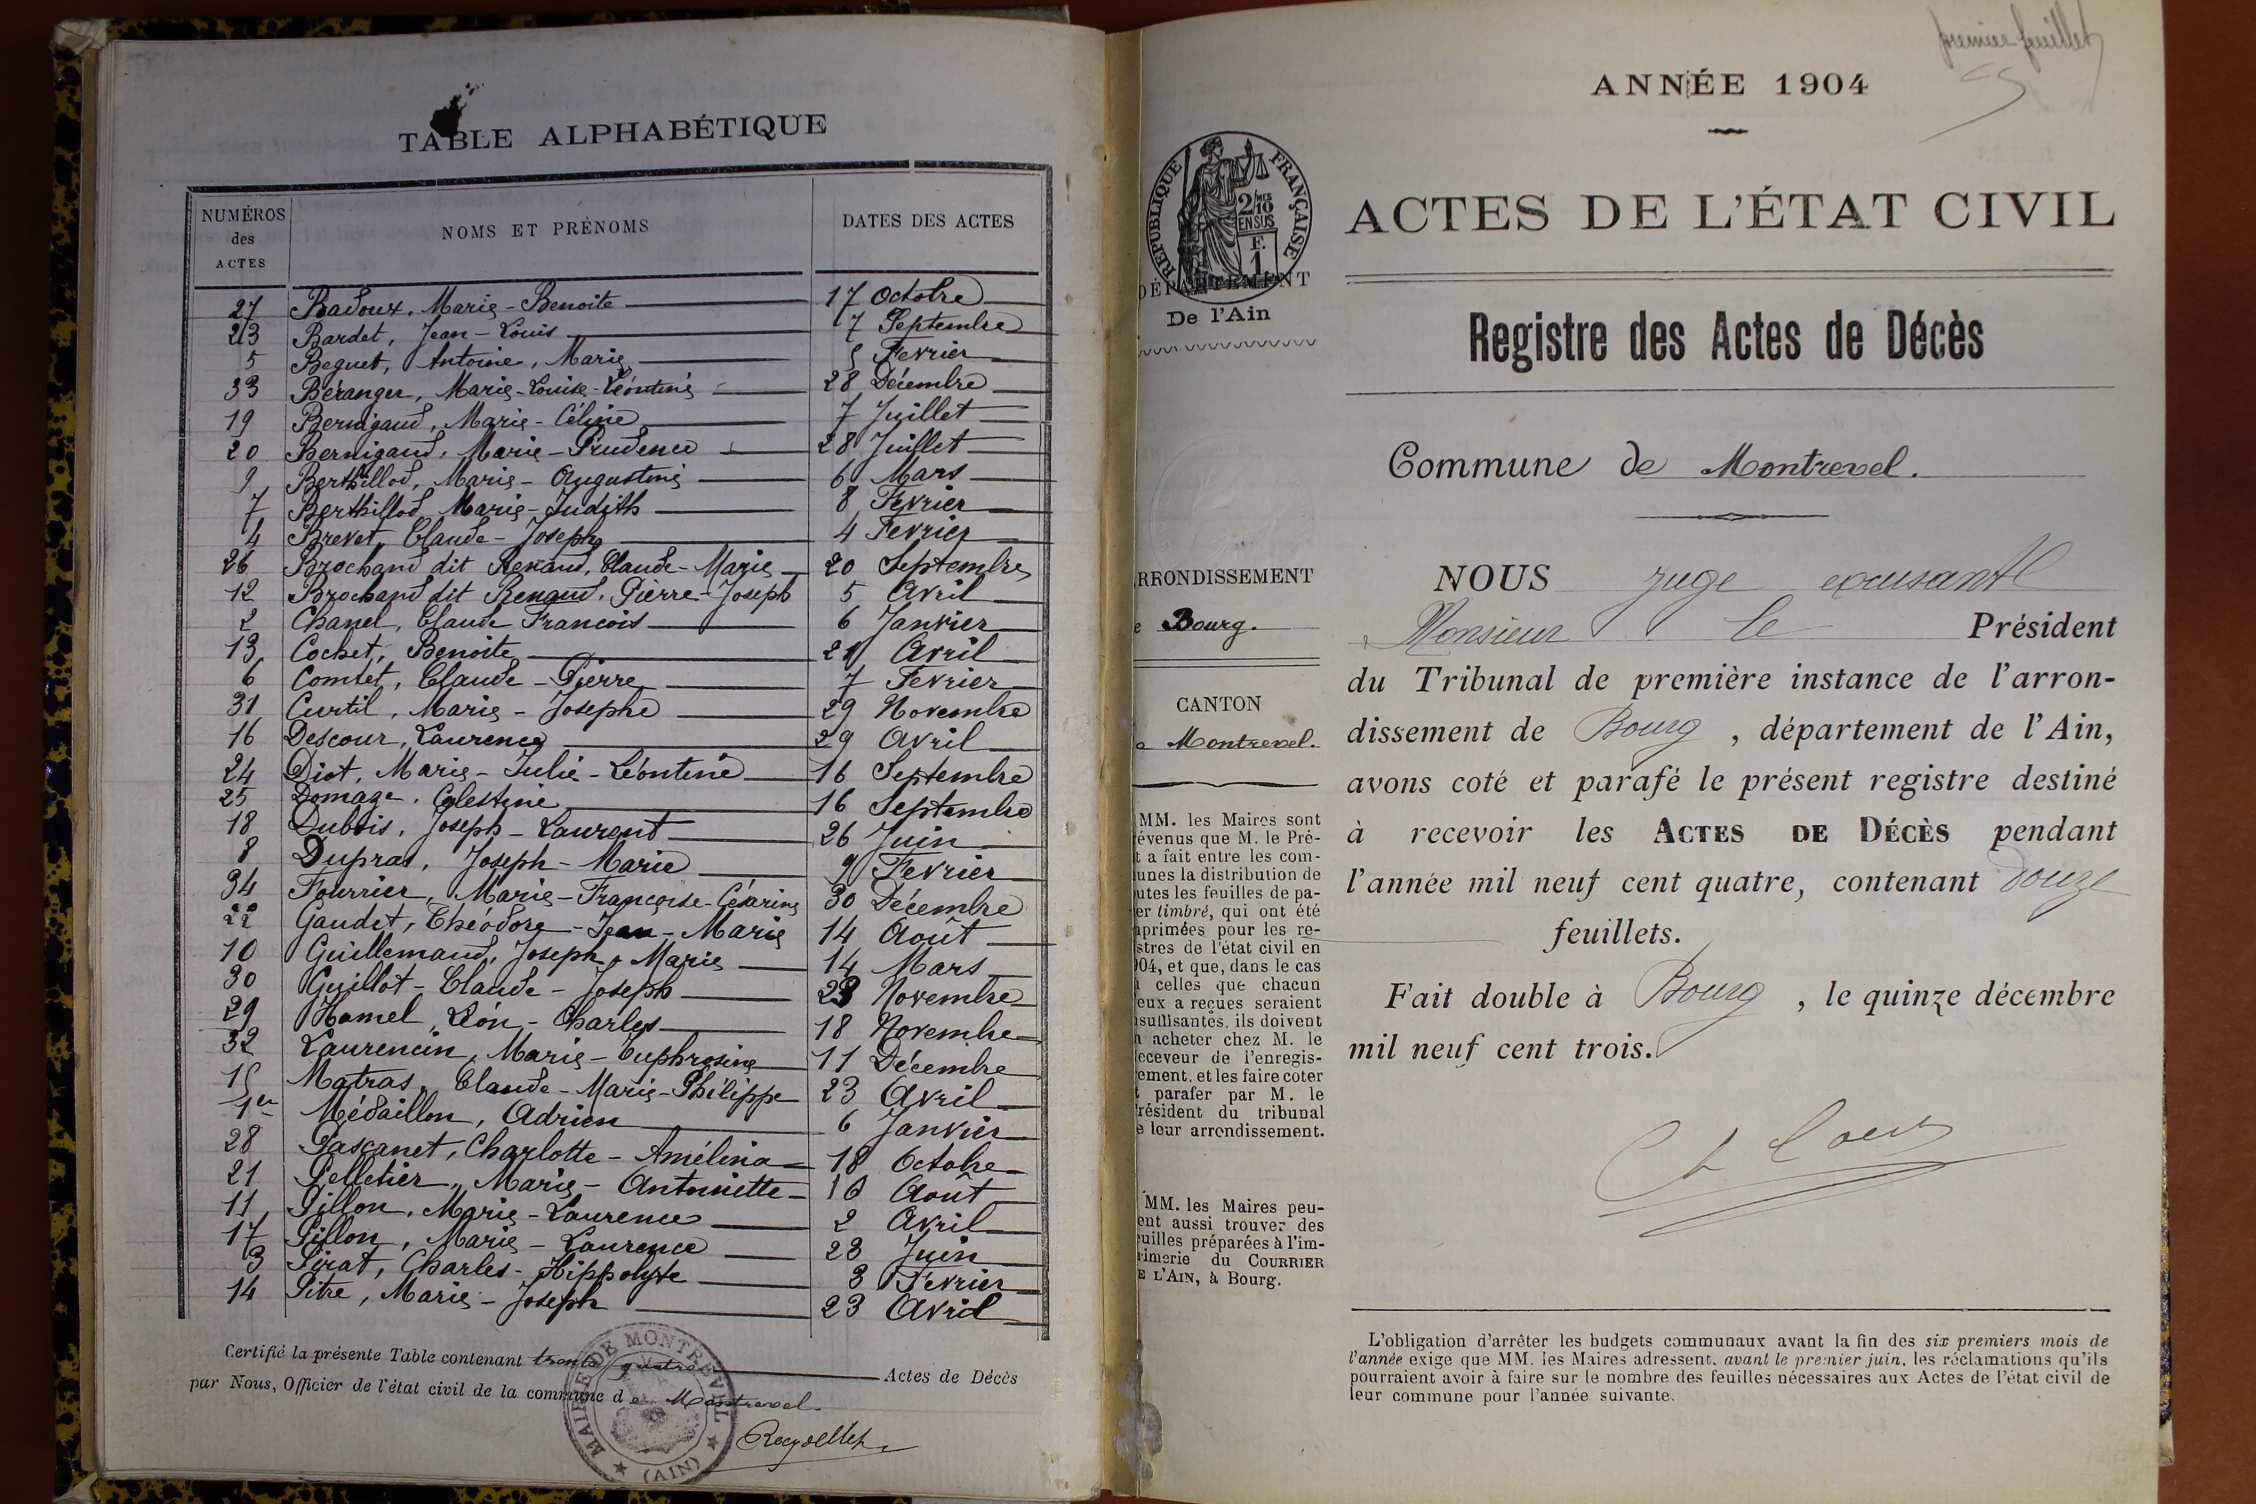 TABLE ALPHABÉTIQUE
NUMÉROS des ACTES
NOMS ET PRÉNOMS
DATES DES ACTES
27 Badoux, Marie-Benoite 17 Octobre
23 Bardet, Jean-Louis 7 Septembre
5 Beguet, Antoine, Marie 5 Fevrier
33 Béranger, Marie-Louise-Léontine 28 Décembre
19 Bernigaud, Marie-Céline 7 Juillet
20 Bernigaud, Marie-Prudence 28 Juillet
9 Berthillod, Marie-Augustine 6 Mars
7 Berthillod, Marie-Judith 8 Fevrier
4 Brevet, Claude-Joseph 4 Fevrier
26 Brochand dit Renaud, Claude-Marie 20 Septembre
12 Brochand dit Renaud, Pierre-Joseph 5 Avril
2 Chanel, Claude Francois 6 Janvier
13 Cochet, Benoite 21 Avril
6 Comtet, Claude-Pierre 7 Fevrier
31 Curtil, Marie-Josephe 29 Novembre
16 Descour, Laurence 29 Avril
24 Diot, Marie-Julie-Léontine 16 Septembre
25 Domage, Celestine 16 Septembre
18 Dubois, Joseph-Laurent 26 Juin
8 Dupras, Joseph-Marie 9 Fevrier
34 Fourrier, Marie-Françoise-Césarine 30 Décembre
22 Gaudet, Théodore-Jean-Marie 14 Août
10 Guillemaud, Joseph, Marie 14 Mars
30 Guillot-Claude-Joseph 23 Novembre
29 Hamel, Léon-Charles 18 Novembre
32 Laurencin, Marie-Euphrosine 11 Décembre
15 Matras, Claude-Marie-Philippe 23 Avril
1er Médaillon, Adrien 6 Janvier
28 Pascanet, Charlotte-Amélina 18 Octobre
21 Pelletier, Marie-Antoinette 16 Août
11 Pillon, Marie-Laurence 2 Avril
17 Pillon, Marie-Laurence 23 Juin
3 Pirat, Charles-Hippolyte 3 Fevrier
14 Pitre, Marie-Joseph 23 Avril
Certifié la présente Table contenant trente quatre Actes de Décès
par Nous, Officier de l'état civil de la commune de Montrevel
MAIRIE DE MONTREVEL (AIN)
premier feuillet
ANNÉE 1904
RÉPUBLIQUE FRANÇAISE
2/10 MES EN SUS
F. 1
ACTES DE L'ÉTAT CIVIL
DÉPARTEMENT
De l'Ain
Registre des Actes de Décès
Commune de Montrevel.
RRONDISSEMENT
e Bourg.
CANTON
e Montrevel.
MM. les Maires sont
évenus que M. le Pré-
t a fait entre les com-
unes la distribution de
utes les feuilles de pa-
er timbré, qui ont été
primées pour les re-
stres de l'état civil en
04, et que, dans le cas
celles que chacun
eux a reçues seraient
suffisantes, ils doivent
acheter chez M. le
eceveur de l'enregis-
ement, et les faire coter
t parafer par M. le
résident du tribunal
e leur arrondissement.
MM. les Maires peu-
ent aussi trouver des
uilles préparées à l'im-
rimerie du COURRIER
E L'AIN, à Bourg.
NOUS juge excusant
Monsieur le Président
du Tribunal de première instance de l'arron-
dissement de Bourg, département de l'Ain,
avons coté et parafé le présent registre destiné
à recevoir les ACTES DE DÉCÈS pendant
l'année mil neuf cent quatre, contenant douze
feuillets.
Fait double à Bourg, le quinze décembre
mil neuf cent trois.
L'obligation d'arrêter les budgets communaux avant la fin des six premiers mois de
l'année exige que MM. les Maires adressent, avant le premier juin, les réclamations qu'ils
pourraient avoir à faire sur le nombre des feuilles nécessaires aux Actes de l'état civil de
leur commune pour l'année suivante.